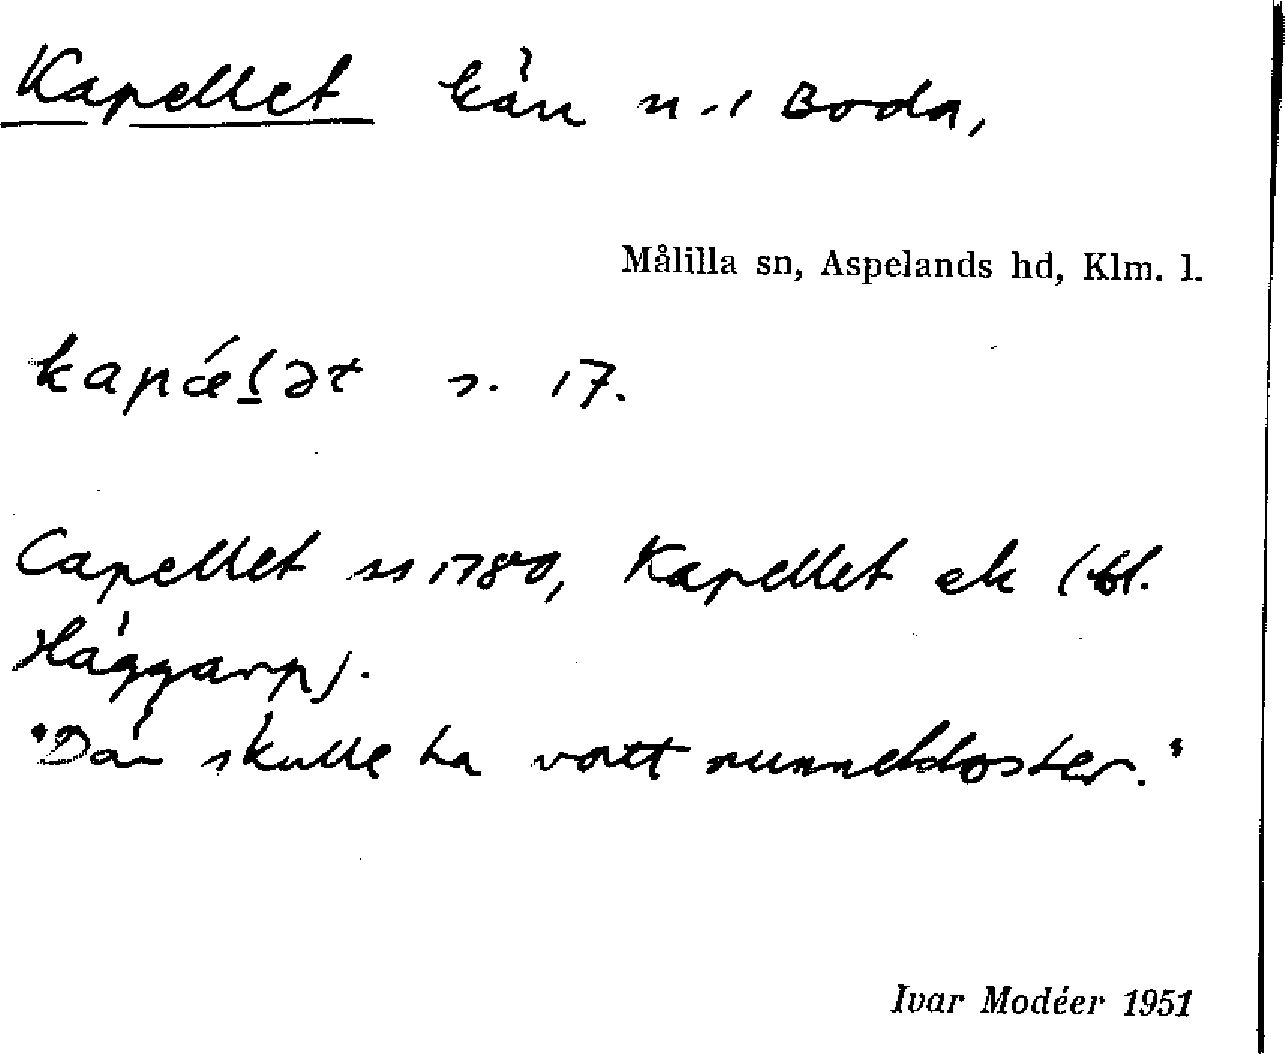 Kapellet kärr n. i Boda,
Målilla sn, Aspelands hd, Klm. l.
kapǽḻət s. 17.
Capellet ss 1780, Kapellet ek (bl.
Häggarp).
"Där skulle ha vatt nunnekloster."
Ivar Modéer 1951